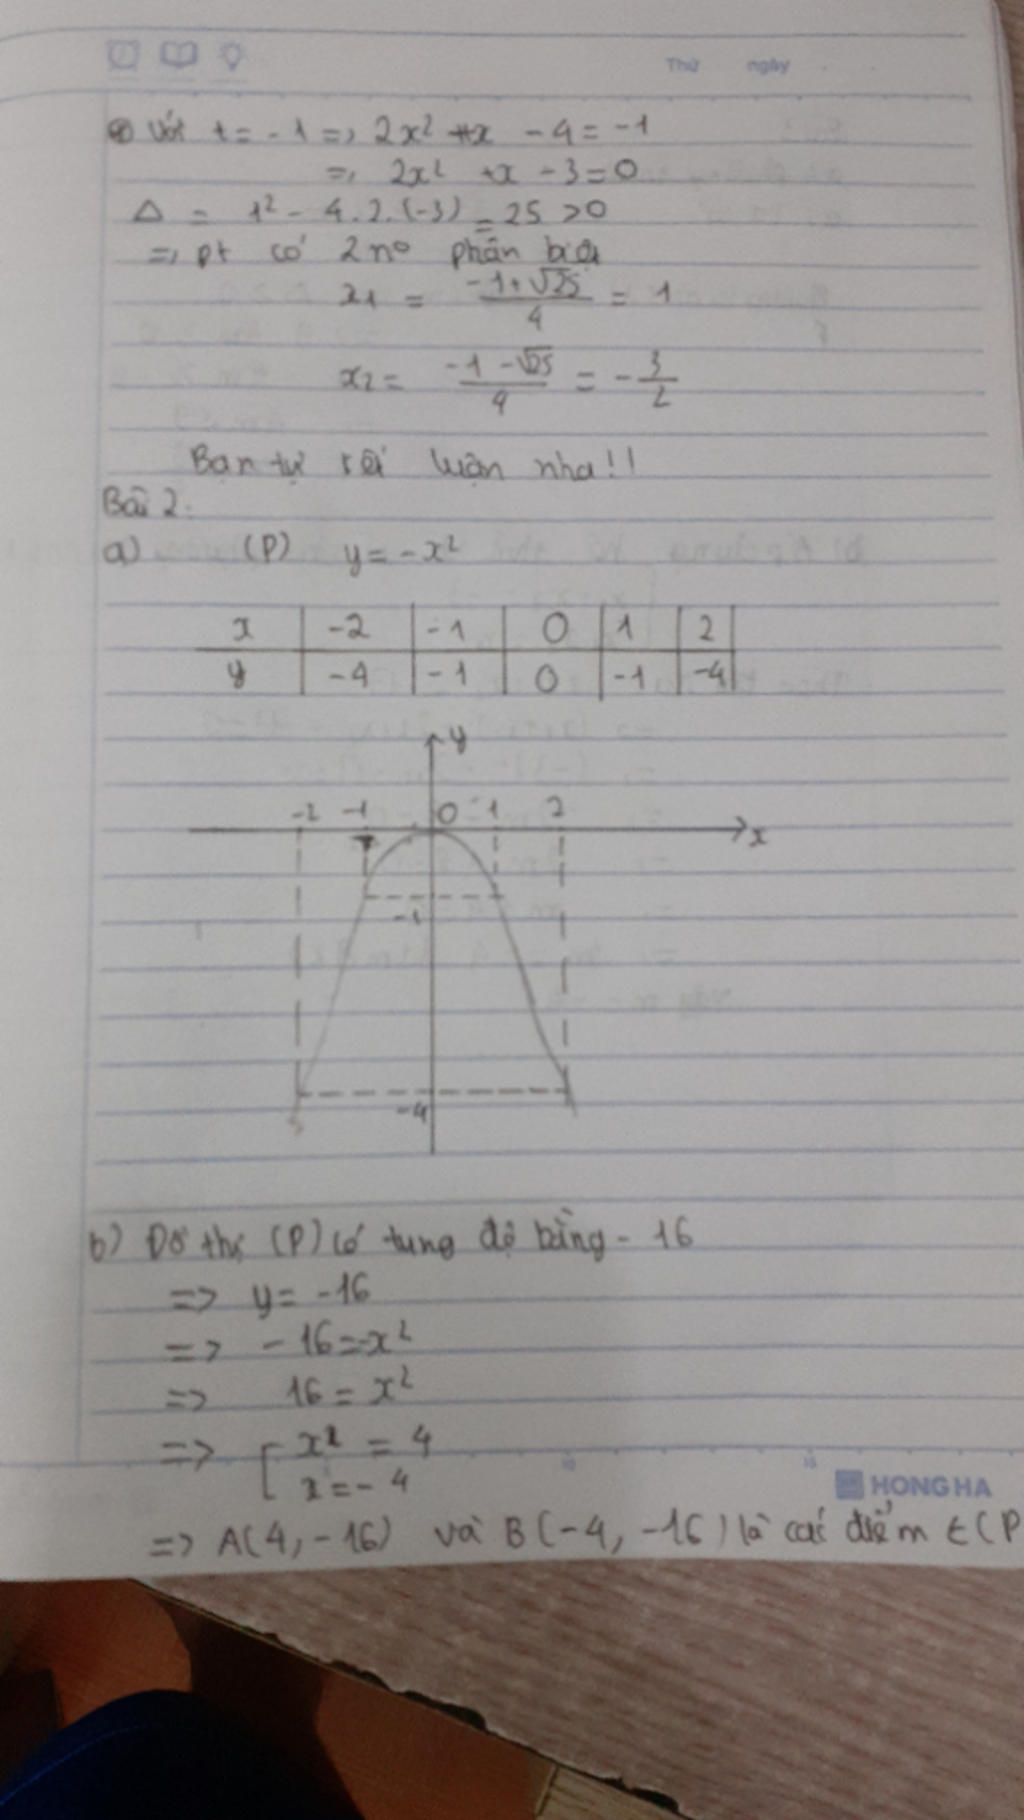 Thứ ngày
Với t = -1 => 2x² + x - 4 = -1
=> 2x² + x - 3 = 0
Δ = 1² - 4.2.(-3) = 25 > 0
=> pt có 2 no phân biệt
x₁ = (-1+√25)/4 = 1
x₂ = (-1-√25)/4 = -3/2
Bạn tự kết luận nha!!
Bài 2:
a) (P) y = -x²
x | -2 | -1 | 0 | 1 | 2
y | -4 | -1 | 0 | -1 | -4
y
-2 -1 0 1 2
x
-1
-4
b) Đồ thị (P) có tung độ bằng -16
=> y = -16
=> -16 = -x²
=> 16 = x²
=> [ x² = 4
x = -4
10 15
HONG HA
=> A(4, -16) và B(-4, -16) là các điểm ∈ (P